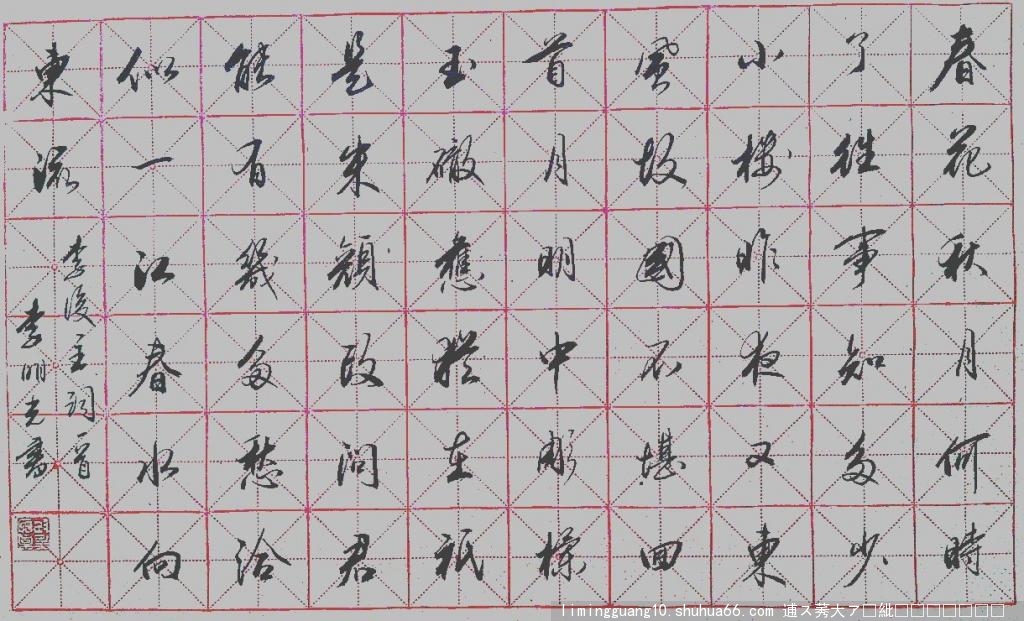 春花秋月何時
了往事知多少
小樓昨夜又東
風故國不堪回
首月明中彫欄
玉砌應猶在祇
是朱顏改問君
能有幾多愁恰
似一江春水向
東流
李後主詞一首
李明光書
limingguang10.shuhua66.com